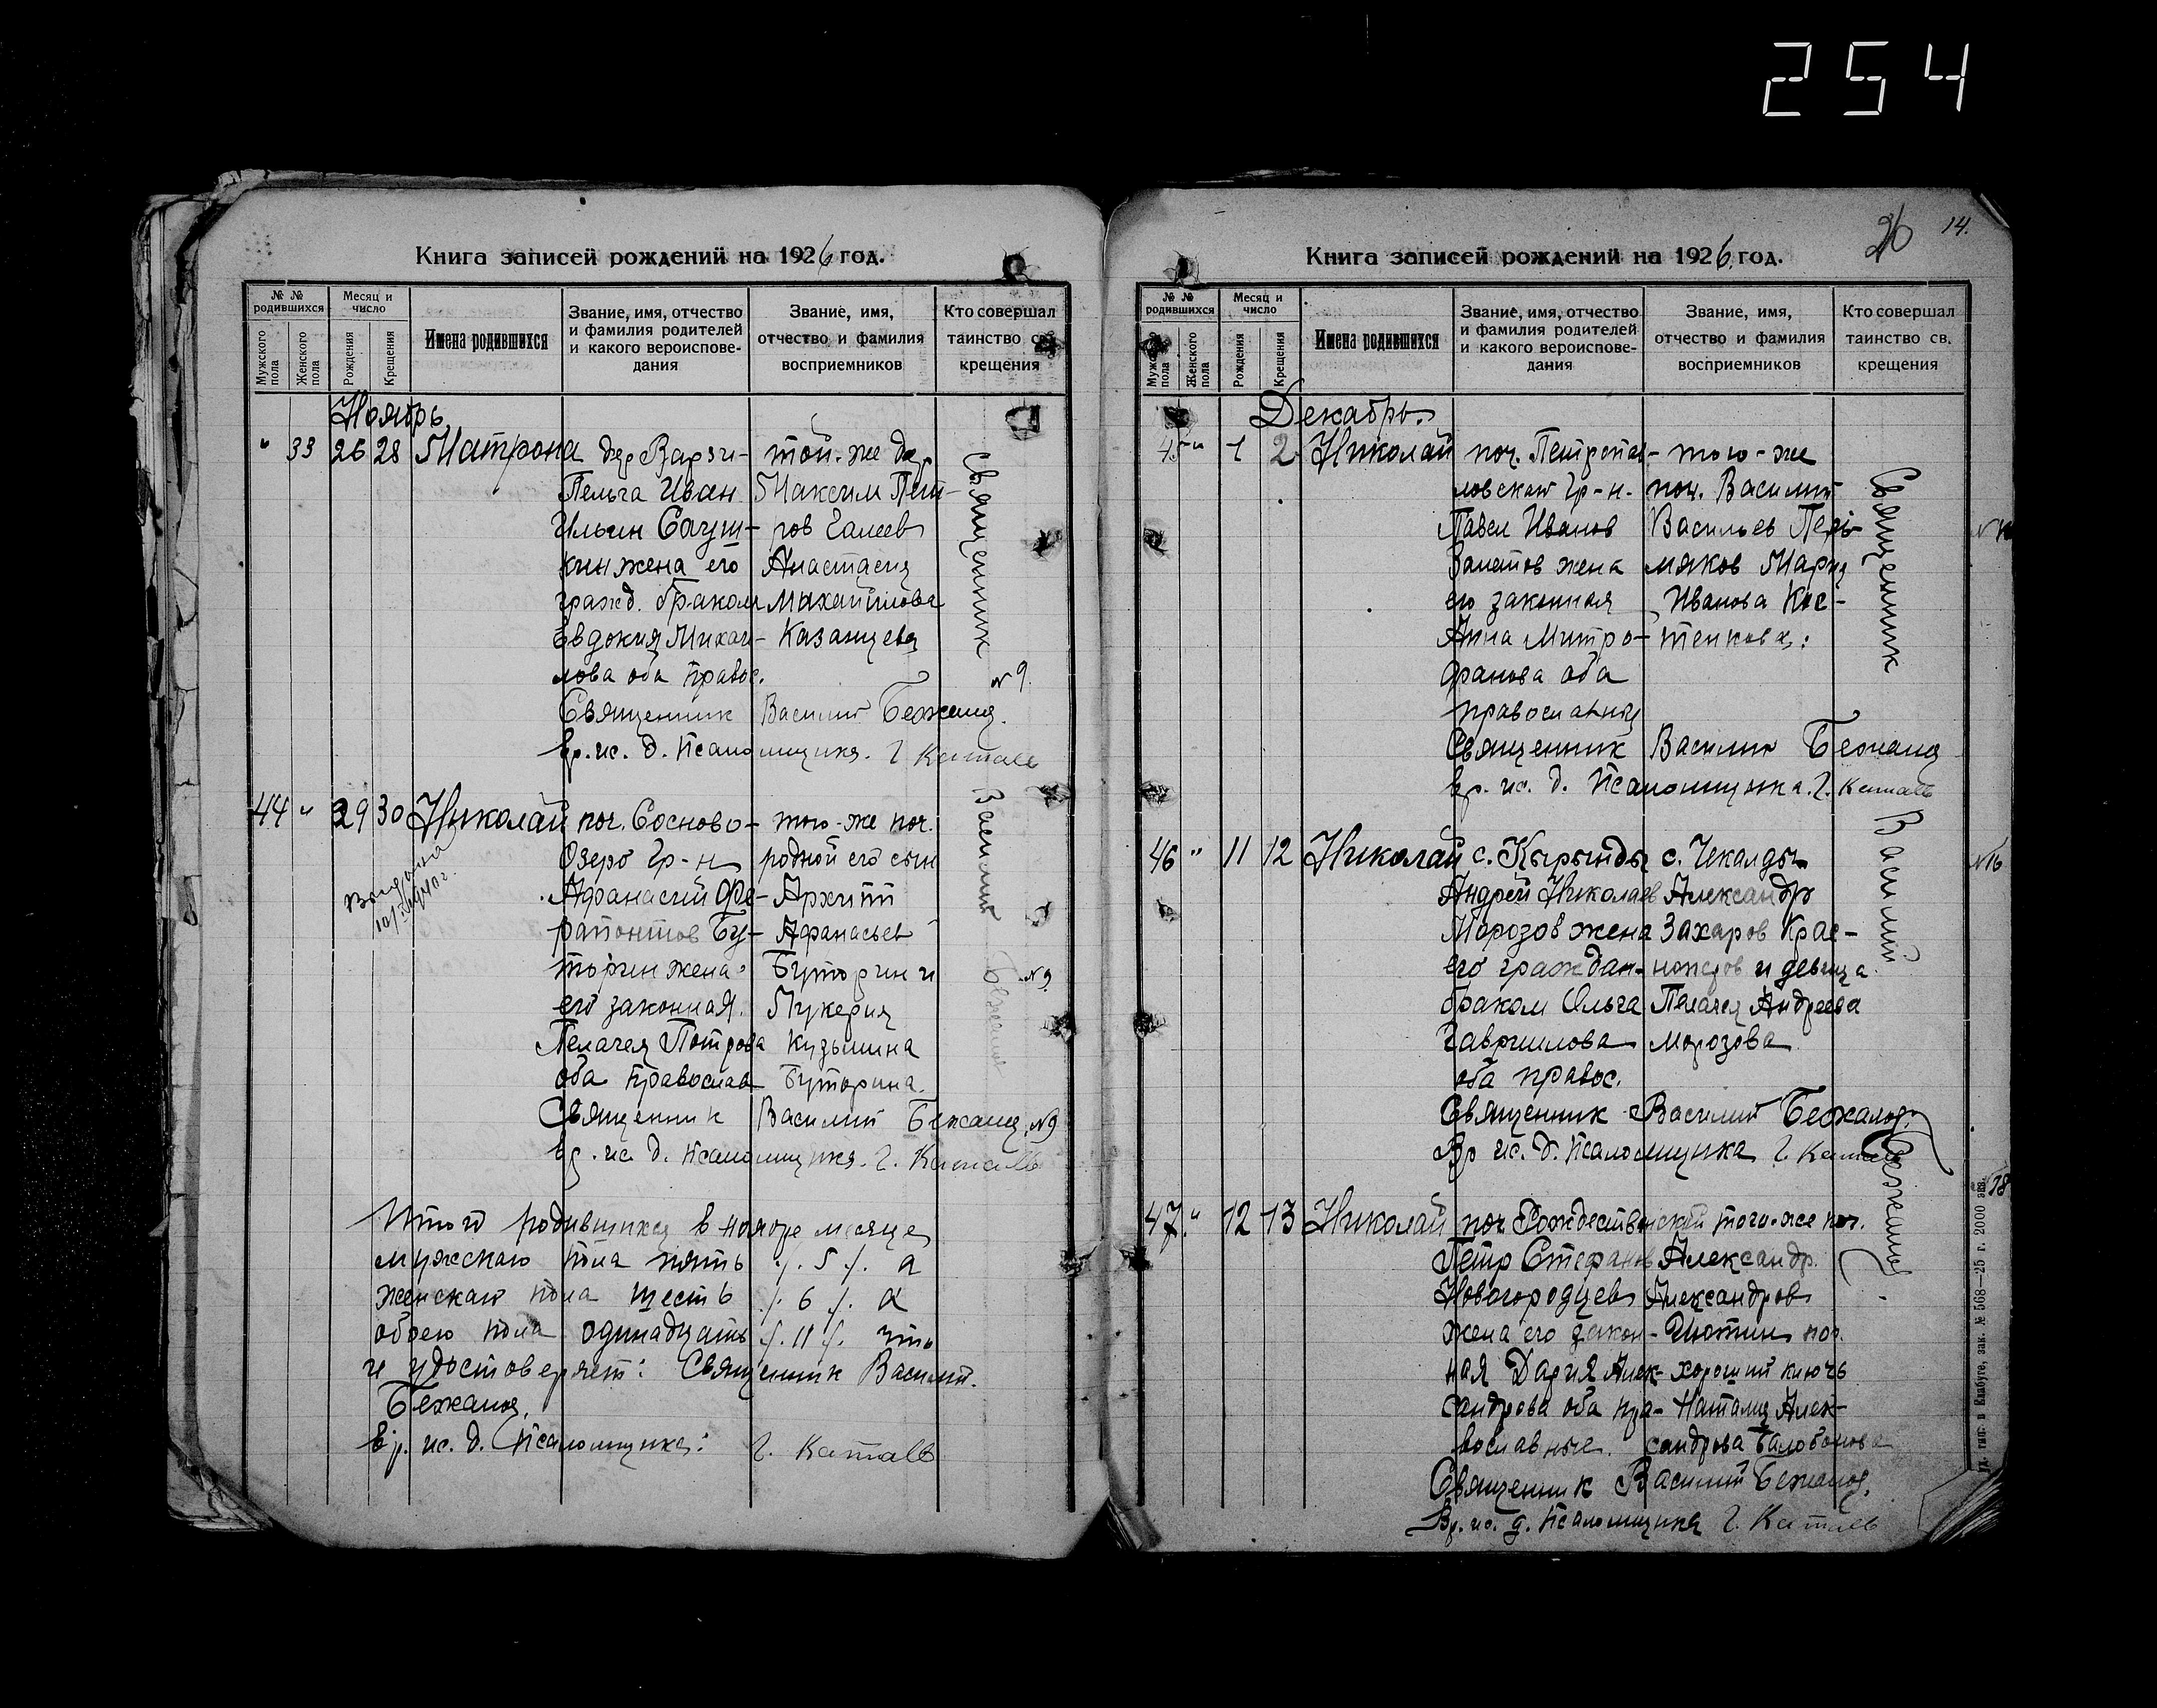 254
Книга записей рождений на 1926 год.
№ № родившихся
Мужского пола
Женского пола
Месяц и число
Рождения
Крещения
Имена родившихся
Звание, имя, отчество и фамилия родителей и какого вероисповедания
Звание, имя, отчество и фамилия восприемников
Кто совершал таинство св. крещения
Ноябрь
" 33 26 28 Матрона дер Варзи- той-же дер
Пельга Иван Максим Пет-
Ильин Сауш- ров Галеев
кин жена его Анастасия
гражд. браком Михайлова
Евдокия Михаи- Казанцева
лова оба правос.
№ 9.
Священник Василий Бежаниц.
Вр. ис. д. Псаломщика. Г. Катаев
44 " 29 30 Николай поч. Сосново- того-же поч.
Озеро Гр-н родной его сын
Афанасий Фе- Архипп
рапонтов Бу- Афанасьев
торин жена Буторин и
его законная. Лукерия
Пелагея Петрова Кузьмина
оба православ Буторина.
№ 9
Священник Василий Бежаниц. №9
Вр. ис. д. Псаломщика. Г. Катаев
Выдана
Священник Василий
Итого родившихся в ноябре месяце
мужского пола пять ./. 5 /. а
женскаго пола шесть ./. 6 ./. а
обоего пола одинадцать ./. 11 /. что
и удостоверяет: Священник Василий.
Бежаниц.
Вр. ис. д. Псаломщика: Г. Катаев
26
14.
Книга записей рождений на 1926 год.
№ № родившихся
Мужского пола
Женского пола
Месяц и число
Рождения
Крещения
Имена родившихся
Звание, имя, отчество и фамилия родителей и какого вероисповедания
Звание, имя, отчество и фамилия восприемников
Кто совершал таинство св. крещения
Декабрь.
45 " 1 2 Николай поч. Петропав- того-же
ловскаго Гр-н. поч. Василий
Павел Иванов Васильев Пер-
жена мяков Мария
его законная Иванова Кос-
Анна Митро- тенкова.
фанова оба
православныя
Священник Василий Бежаниц
Вр. ис. д. Псаломщика. Г. Катаев
46 " 11 12 Николай с. Кырынды с. Чекалды
Андрей Николаев Александр
Морозов жена Захаров Крас-
его граждан- ноперов и девица
браком Ольга Пелагея Андреева
Гаврилова Морозова
оба правос.
№16
Священник Василий Бежаниц.
Вр ис. д. Псаломщика Г. Катаев
47. " 12 13 Николай поч Рождественский того-же поч.
Петр Стефанов Александр.
Новогородцев Александров
жена его закон- Июдин поч.
ная Дария Алек- хороший ключь
сандрова оба пра- Наталия Алек-
вославные. сандрова Балобонова
Священник Василий Бежаниц.
Вр. ис. д. Псаломщика Г. Катаев
Священник Василий Бежаниц
зак. № 568—25 г. 2000 экз.